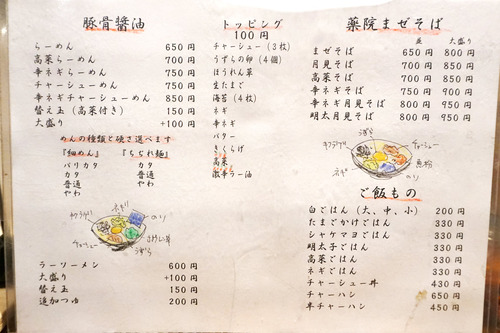 豚骨醤油
らーめん 650円
高菜らーめん 700円
辛ネギらーめん 700円
チャーシューめん 750円
辛ネギチャーシューめん 850円
替え玉(高菜付き) 150円
大盛り +100円
めんの種類と硬さ選べます
『細めん』 『ちぢれ麺』
バリカタ カタ
カタ 普通
普通 やわ
やわ
ネギ
キクラゲ
のり
チャーシュー
うずら
ラーソーメン 600円
大盛り +100円
替え玉 150円
追加つゆ 200円
トッピング
100円
チャーシュー(3枚)
うずらの卵(4個)
ほうれん草
生たまご
海苔(4枚)
ネギ
辛ネギ
バター
きくらげ
高菜
激辛ラー油
薬院まぜそば
並 大盛り
まぜそば 650円 800円
月見そば 700円 850円
高菜そば 700円 850円
辛ネギそば 750円 900円
辛ネギ月見そば 800円 950円
明太月見そば 800円 950円
うずら
キクラゲ
チャーシュー
魚粉
ネギ
のり
ご飯もの
白ごはん(大、中、小) 200円
たまごかけごはん 330円
シャケマヨごはん 330円
明太子ごはん 330円
高菜ごはん 330円
ネギごはん 330円
チャーシュー丼 430円
チャーハン 650円
半チャーハン 450円